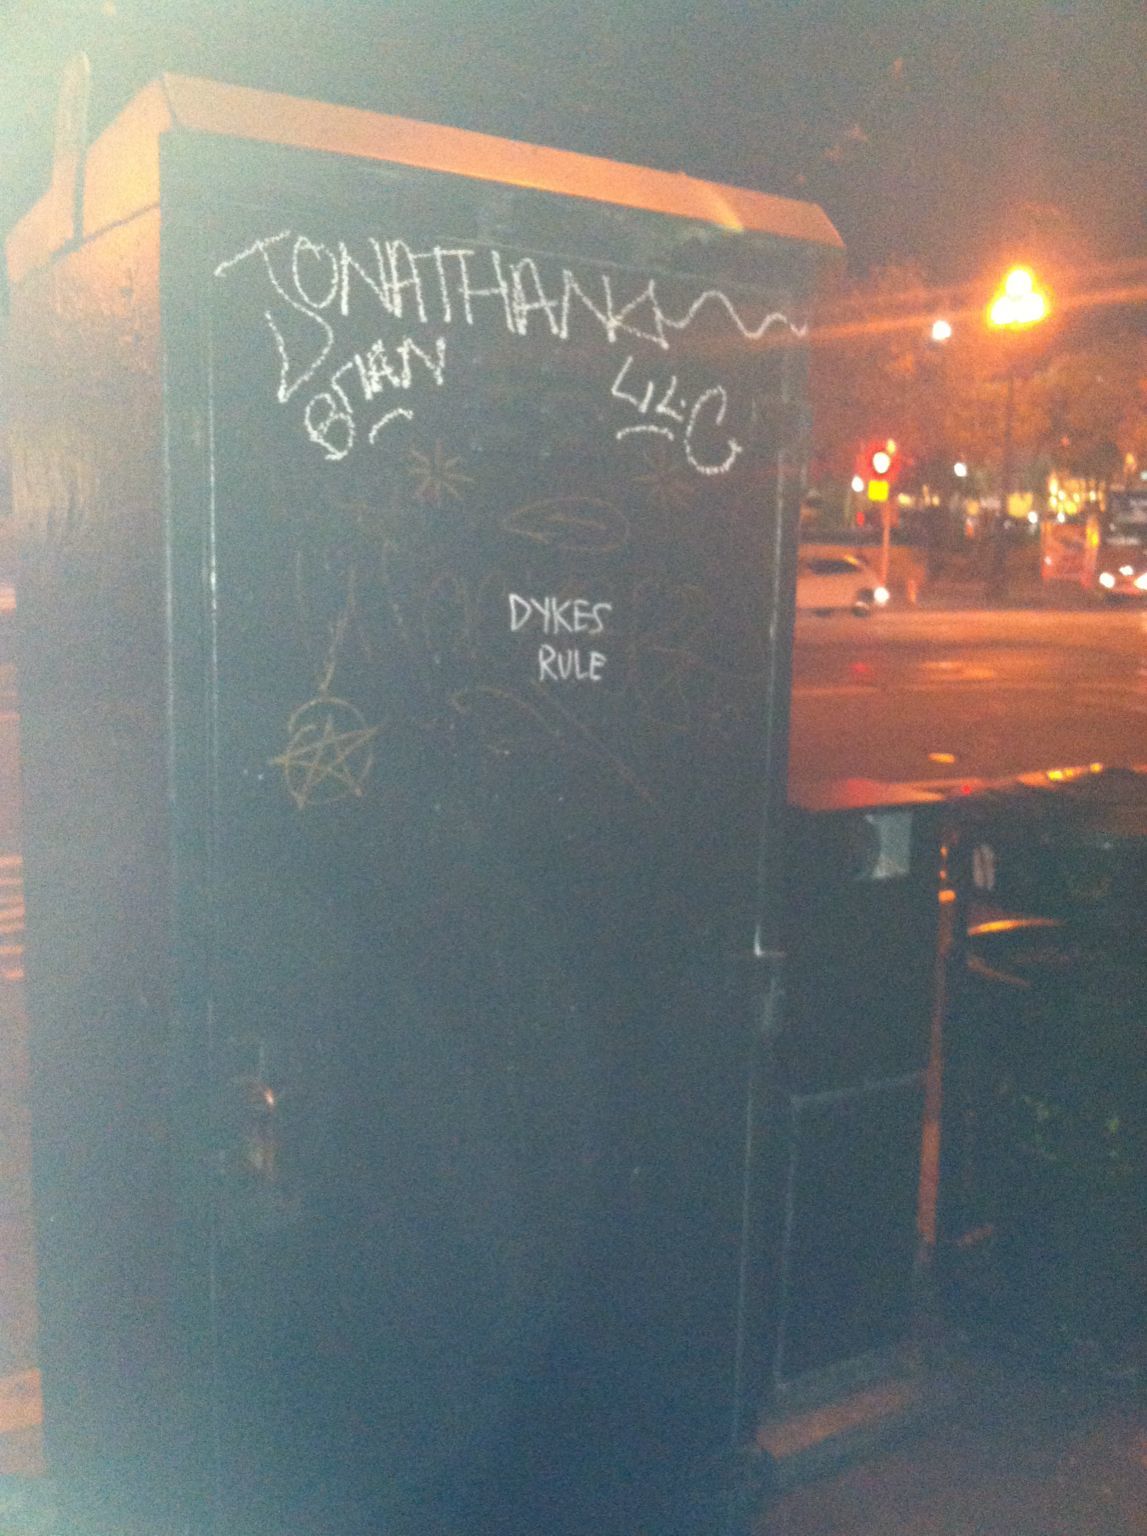 JONATHAN
BrIAN
LIL C
DYKES
RULE